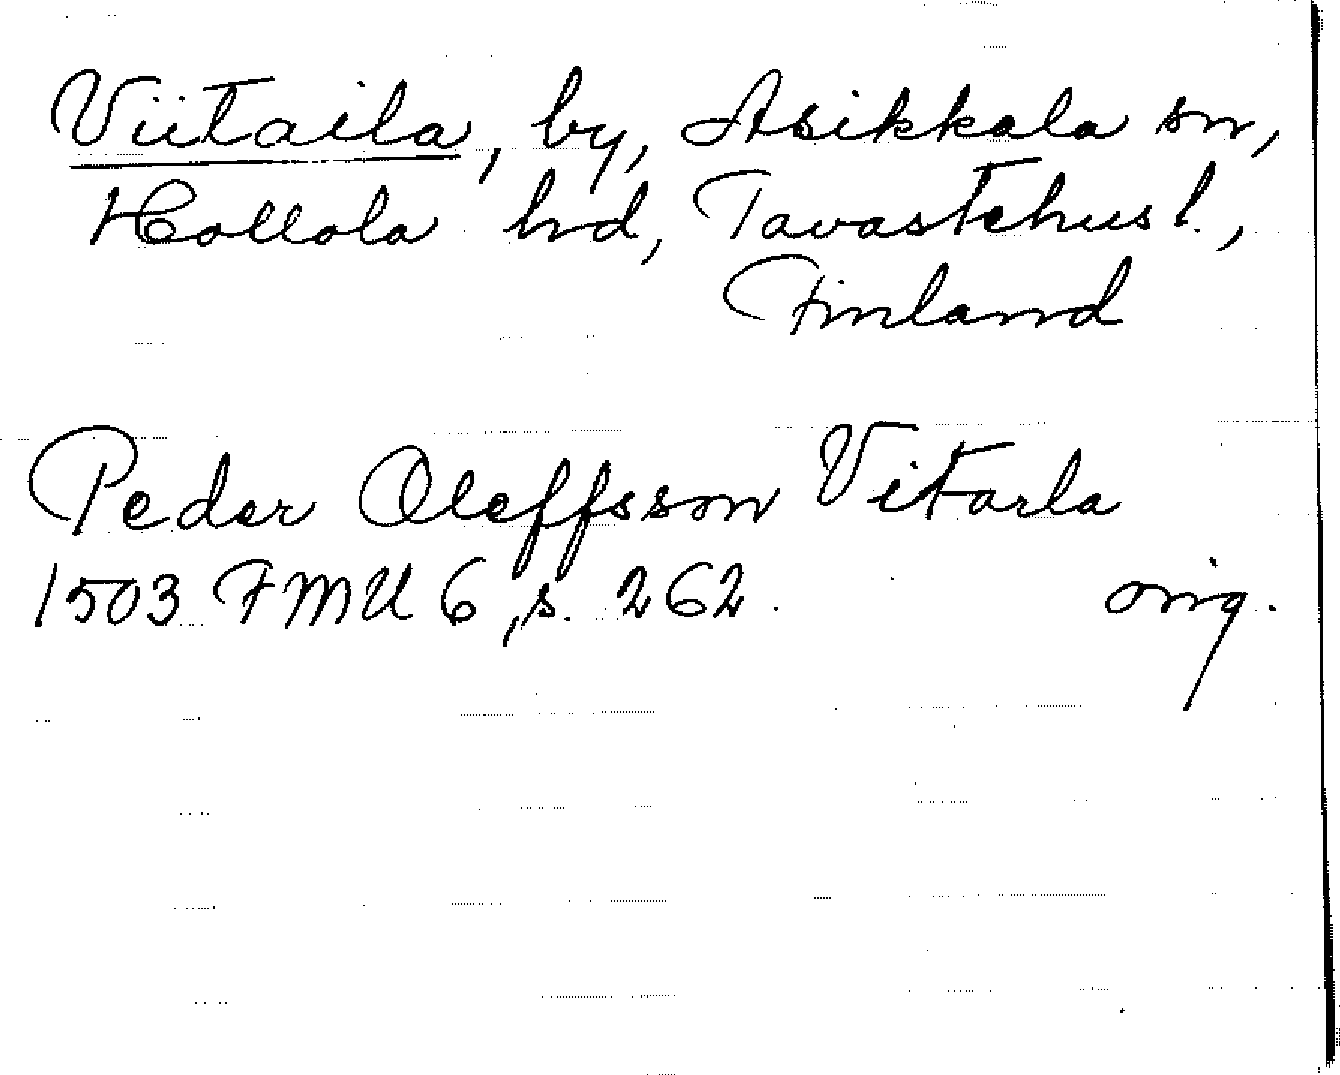 Viitaila, by, Asikkala sn,
Hollola hd, Tavastehus l.,
Finland
Peder Oleffsson Vitarla
1503 FMU 6, s. 262. orig.